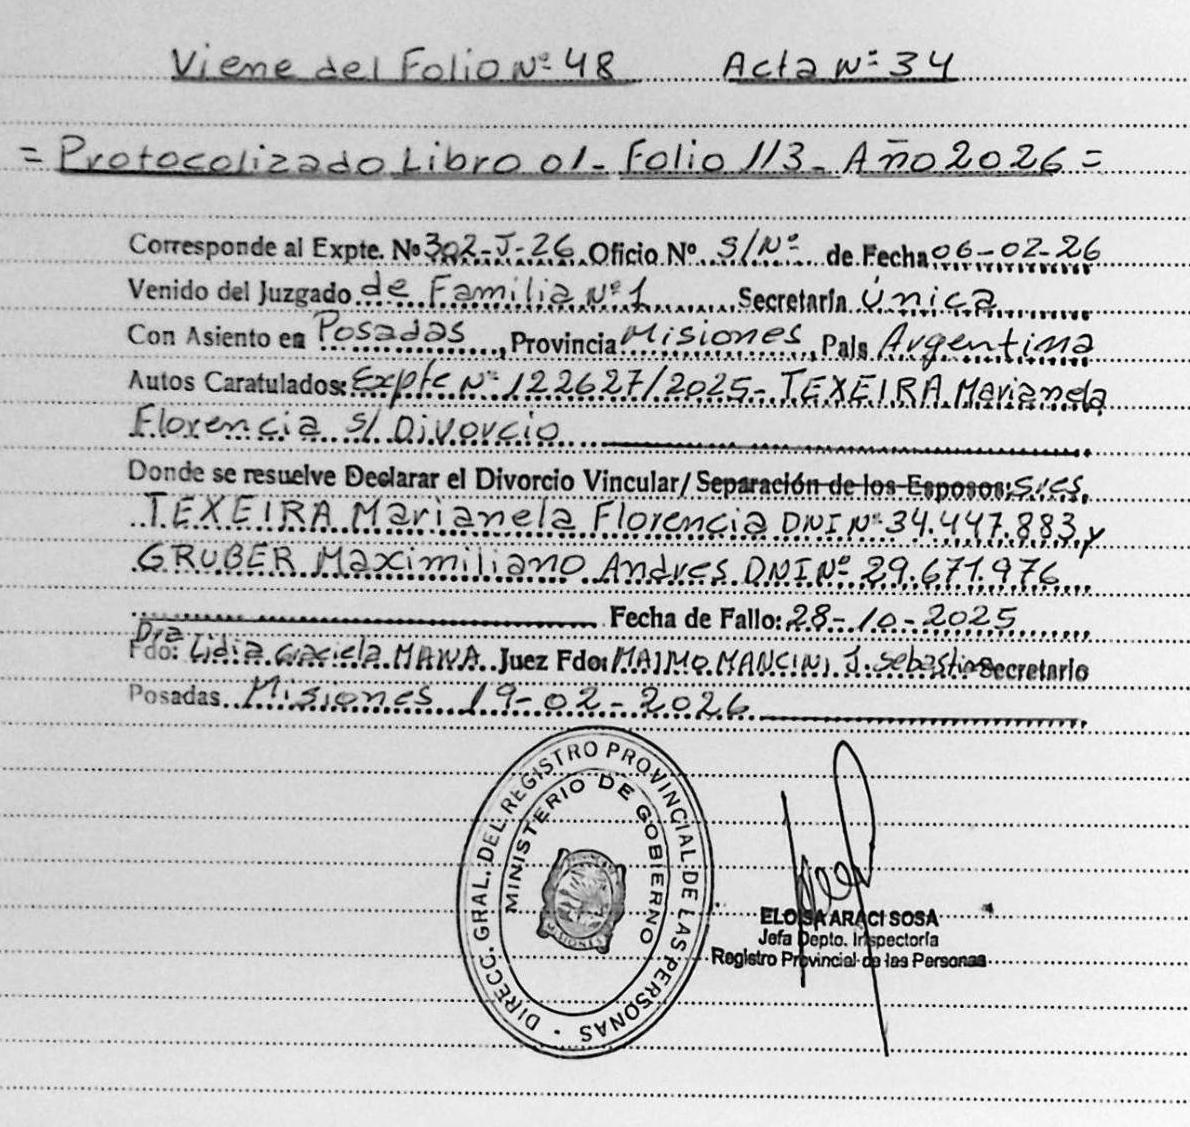 Viene del Folio Nº 48 Acta Nº 34
= Protocolizado Libro 01- Folio 113- Año 2026 =
Corresponde al Expte. Nº 302-J-26 Oficio Nº S/Nº de Fecha 06-02-26
Venido del Juzgado de Familia Nº 1 Secretaría Única
Con Asiento en Posadas, Provincia Misiones, País Argentina
Autos Caratulados: Expte Nº 122627/2025- TEXEIRA Marianela
Florencia s/ Divorcio
Donde se resuelve Declarar el Divorcio Vincular/ Separación de los Esposos: Sres,
TEXEIRA Marianela Florencia DNI Nº 34.447.883 y
GRUBER Maximiliano Andres DNI Nº 29.671.976
Fecha de Fallo: 28-10-2025
Fdo: Dra Lidia Graciela Juez Fdo: MAIMO MANCINI, J. Sebastian Secretario
Posadas. Misiones 19-02-2026
DIRECC. GRAL. DEL REGISTRO PROVINCIAL DE LAS PERSONAS
MINISTERIO DE GOBIERNO
MISIONES
ELOISA ARACI SOSA
Jefa Depto. Inspectoría
Registro Provincial de las Personas